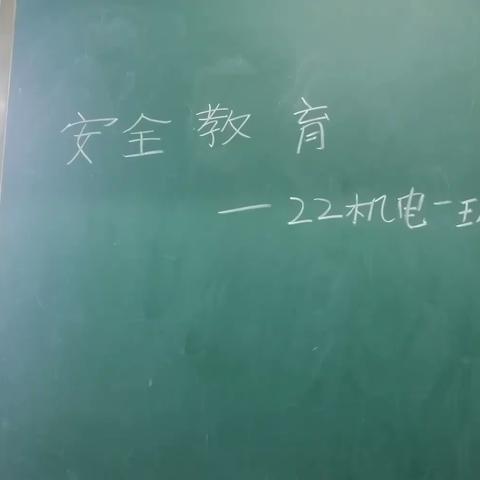 安全教育
—22机电一